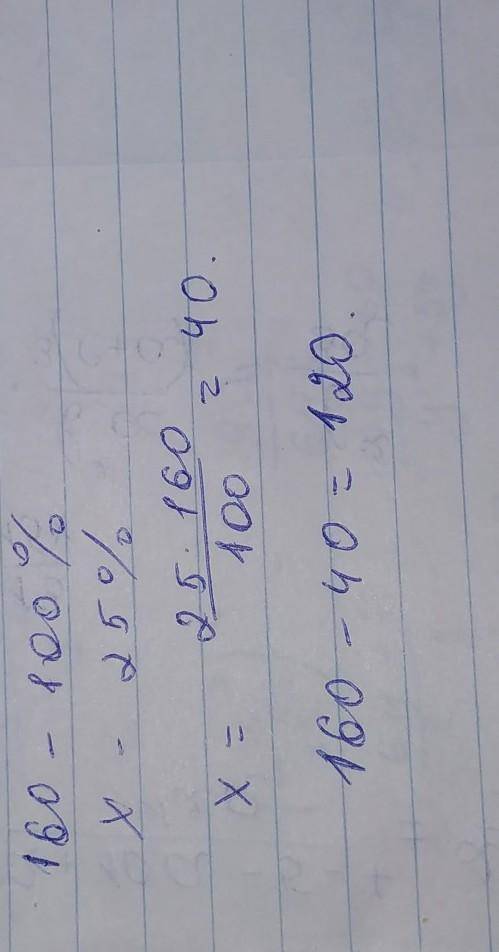 160 - 100%
x - 25%
x = 25 · 160 / 100 = 40.
160 - 40 = 120.